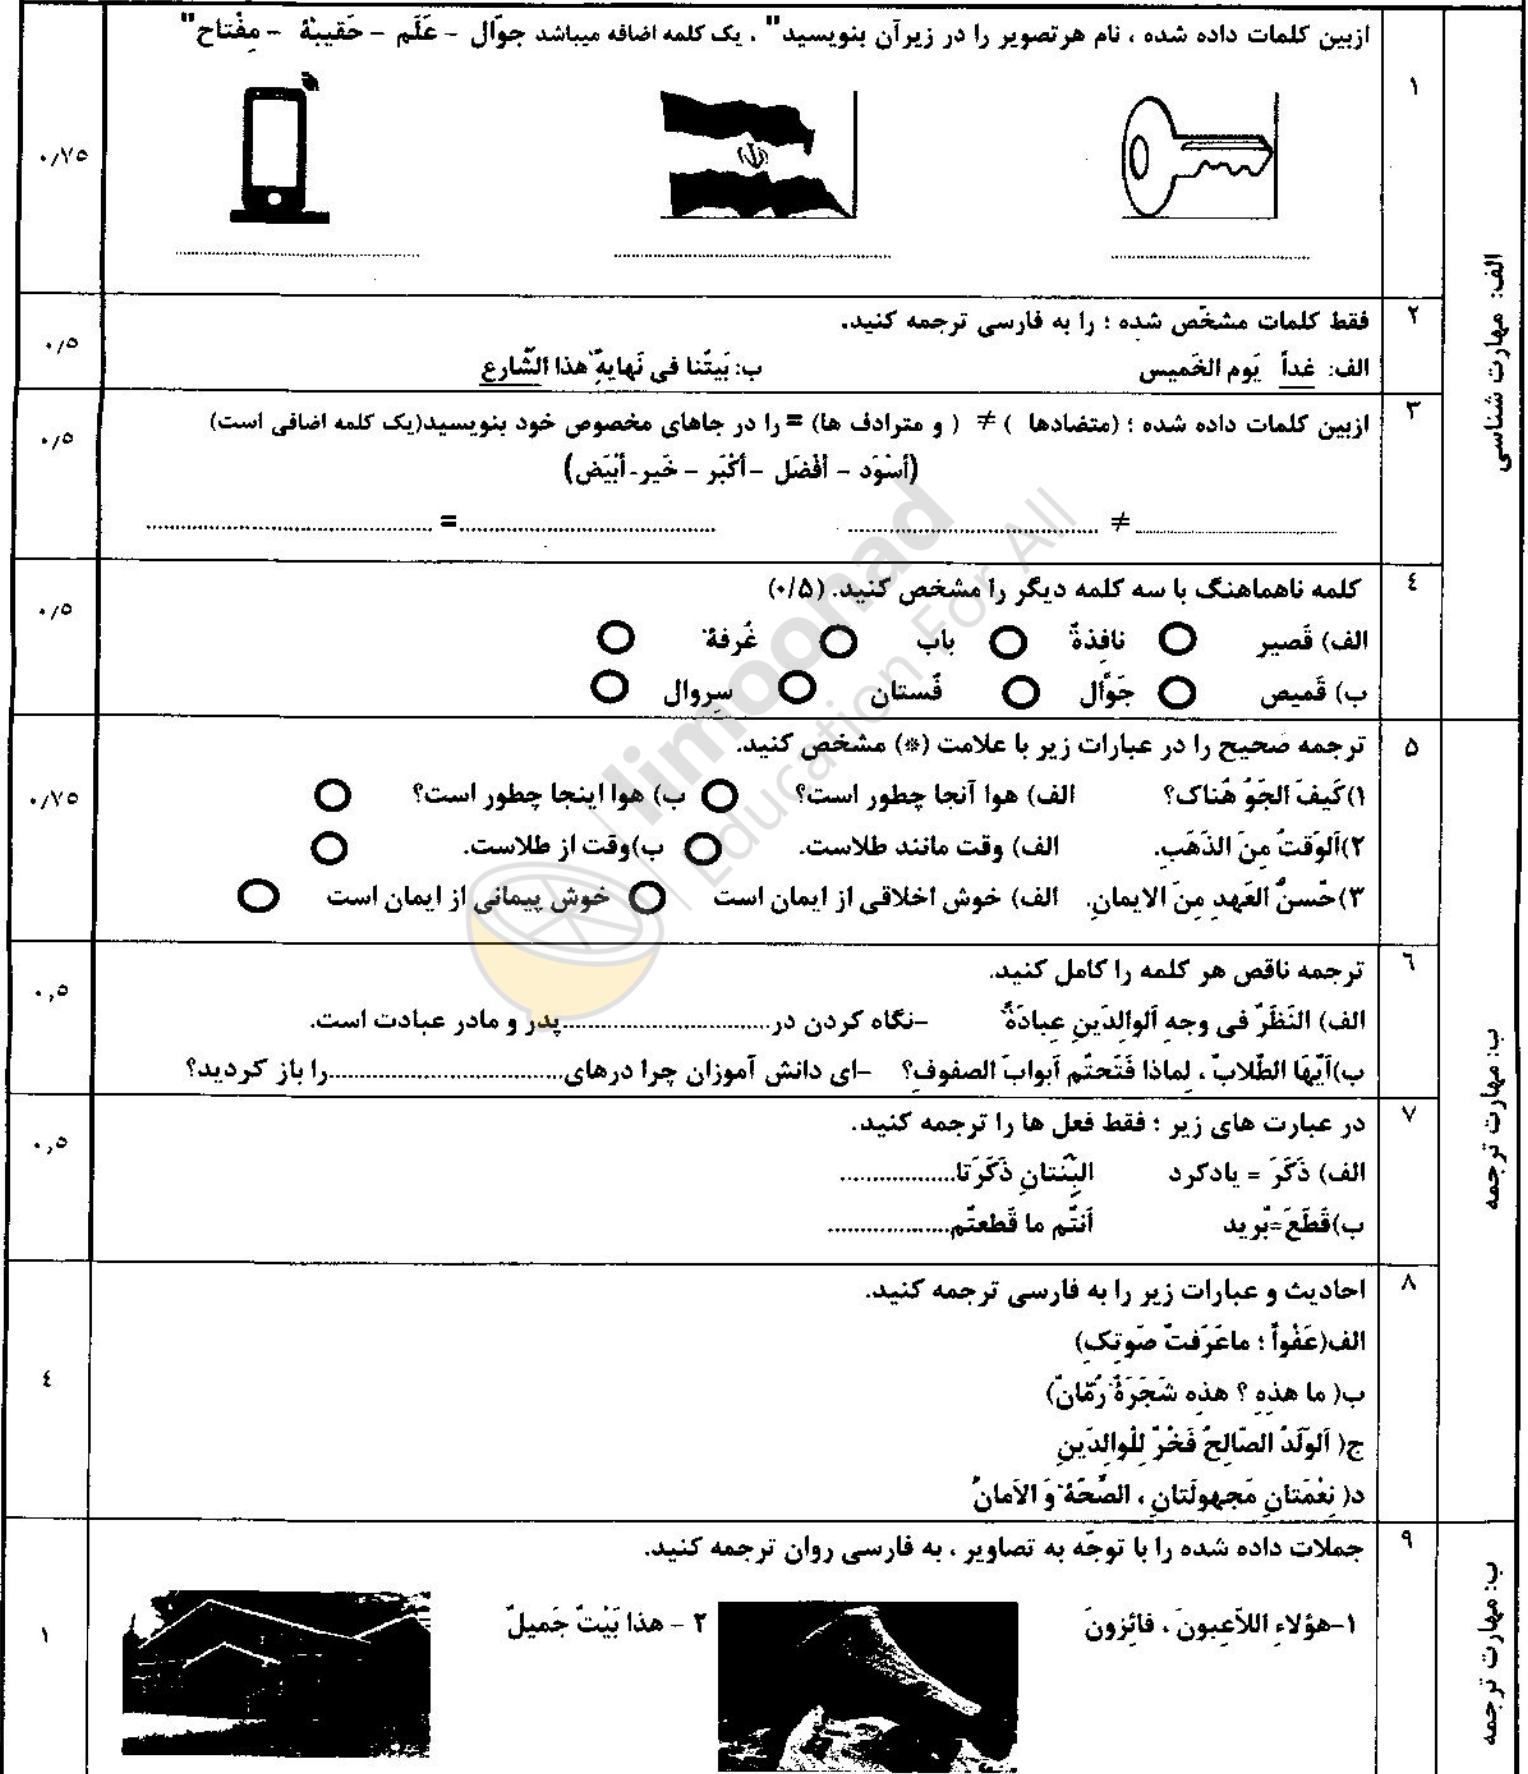 ازبین کلمات داده شده ، نام هرتصویر را در زیرآن بنویسید" . یک کلمه اضافه میباشد جوّال - عَلَم - حَقیبَة - مِفْتاح"
۱
۰/۷۵
الف: مهارت شناسی
۲
فقط کلمات مشخّص شده ؛ را به فارسی ترجمه کنید.
الف: غداً یَوم الخَمیس ب: بَیتُنا فی نَهایةِ هذا الشّارع
۰/۵
۳
ازبین کلمات داده شده ؛ (متضادها ) ≠ ( و مترادف ها) = را در جاهای مخصوص خود بنویسید(یک کلمه اضافی است)
(أسْوَد - أفْضَل - أکْبَر - خَیر- أبْیَض)
.............................. ≠ .............................. .............................. = ..............................
۰/۵
٤
کلمه ناهماهنگ با سه کلمه دیگر را مشخص کنید. (۰/۵)
الف) قَصیر نافِذةٌ باب غُرفة
ب) قَمیص جَوّال فُستان سِروال
۰/۵
۵
ترجمه صحیح را در عبارات زیر با علامت (*) مشخص کنید.
۱)کَیفَ الجَوُ هُناک؟ الف) هوا آنجا چطور است؟ ب) هوا اینجا چطور است؟
۲)اَلوَقتُ مِنَ الذَهَبِ. الف) وقت مانند طلاست. ب)وقت از طلاست.
۳)حُسنُ العَهدِ مِنَ الایمانِ. الف) خوش اخلاقی از ایمان است خوش پیمانی از ایمان است
۰/۷۵
ب: مهارت ترجمه
٦
ترجمه ناقص هر کلمه را کامل کنید.
الف) النَظَرُ فی وجهِ اَلوالِدَینِ عِبادَةٌ -نگاه کردن در..............................پدر و مادر عبادت است.
ب)اَیُّهَا الطُلابُ ، لِماذا فَتَحتُم اَبوابَ الصفوفِ؟ -ای دانش آموزان چرا درهای..............................را باز کردید؟
۰,۵
۷
در عبارت های زیر ؛ فقط فعل ها را ترجمه کنید.
الف) ذَکَرَ = یادکرد البِنتانِ ذَکَرَتا..................
ب)قَطَعَ=بُرید اَنتُم ما قَطعتُم...................
۰,۵
۸
احادیث و عبارات زیر را به فارسی ترجمه کنید.
الف(عَفْواً ؛ ماعَرَفتُ صَوتِکِ)
ب( ما هذِهِ ؟ هذِه شَجَرَةُ رُمّانٍ)
ج( اَلوَلَدُ الصّالِحُ فَخْرٌ لِلْوالِدَینِ
د( نِعْمَتانِ مَجهولَتانِ ، الصِّحَةُ وَ الاَمانُ
٤
۹
جملات داده شده را با توجّه به تصاویر ، به فارسی روان ترجمه کنید.
۱-هؤلاءِ اللاّعِبونَ ، فائِزونَ ۲ - هذا بَیْتٌ جَمیلٌ
۱
ب: مهارت ترجمه
limoonad
Education For All